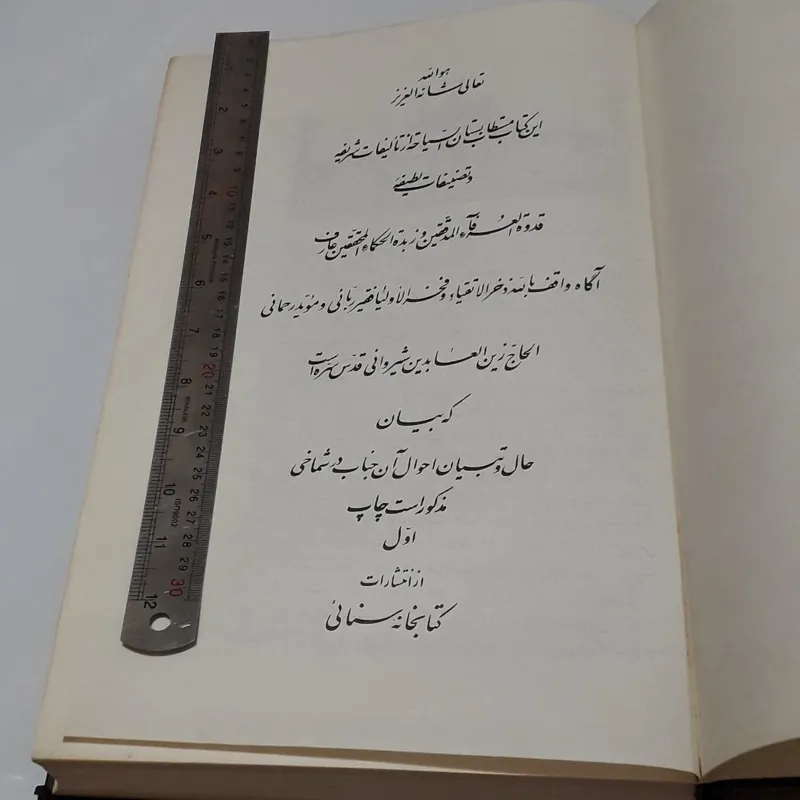 هوالله
تعالی شانه العزیز
این کتاب مستطاب بستان السیاحة از تألیفات شریفه
و تصنیفات لطیفهٔ
قدوة العرفاء المدققین و زبدة الحکماء المحققین عارف
آگاه واقف بالله ذخر الاتقیاء و فخر الأولیا فقیر ربانی و مؤید رحمانی
الحاج زین العابدین شیروانی قدس سره است
که بیان
حال و تبیان احوال آن جناب در شماخی
مذکور است چاپ
اول
از انتشارات
کتابخانه سنائی
2
3
4
5
6
7
8
9
10
11
12
10
17
18
19
20
21
22
23
24
25
26
27
28
29
30
STAINLESS
ISO9002